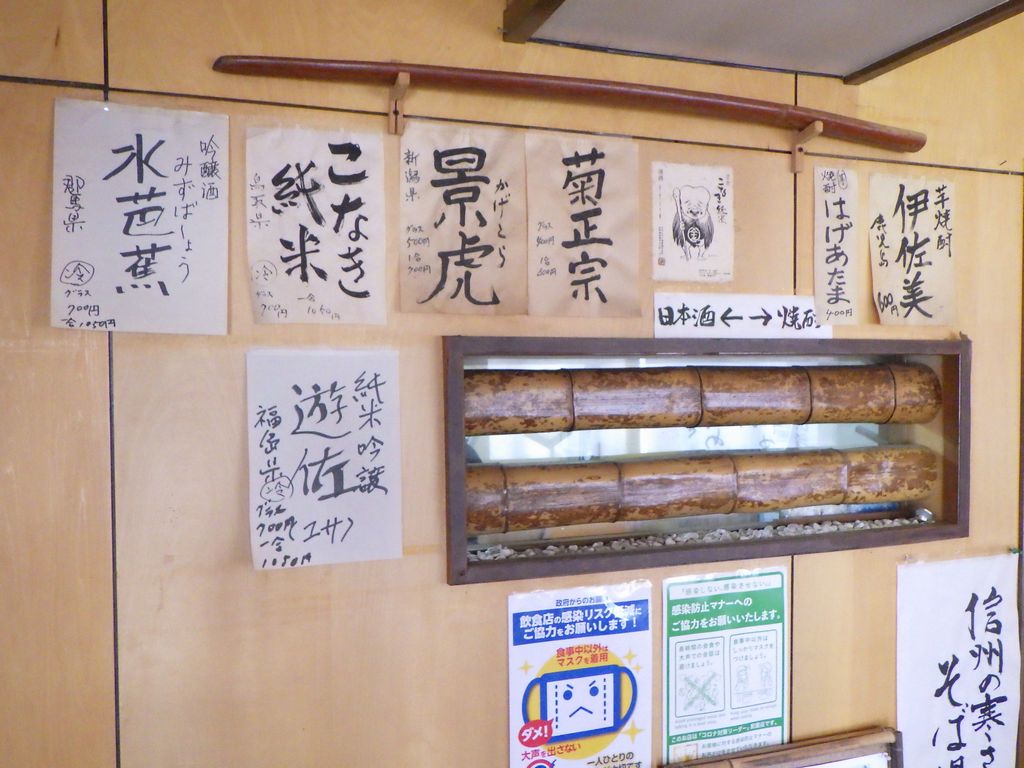 吟醸酒
みずばしょう
水芭蕉
郡馬県
冷
グラス
700円
一合1050円
こなき
純米
鳥取県
冷
グラス
700円
一合
1050円
かげとら
景虎
新潟県
グラス
500円
1合
900円
菊正宗
グラス
400円
1合
600円
こなき純米
焼酎
はげあたま
400円
芋焼酎
伊佐美
鹿児島
600円
日本酒←→焼酎
純米吟醸
遊佐
(ユサ)
福島県
冷
グラス
700円
一合
1050円
政府からのお願い
飲食店の感染リスク低減に
ご協力をお願いします!
食事中以外は
マスクを着用
ダメ!
大声を出さない
一人ひとりの
「感染しない、感染させない」
感染防止マナーへの
ご協力をお願いいたします。
長時間の会食や
大声での会話は
避けましょう。
食事中以外は
しっかりマスクを
つけましょう。
このお店は「コロナ対策リーダー」配置店です。
信州の寒さ
そば